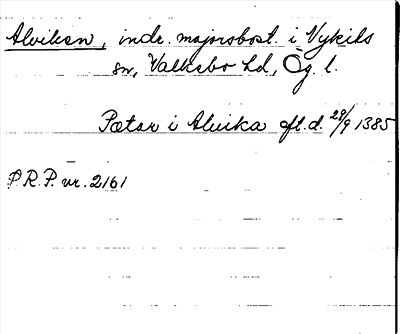 Alviken, indr. majorsbost. i Vykils
sn, Valkebo hd, Ög. l.
Petar i Aluika oft. d. 28/9 1385
P.R.P. nr. 2161